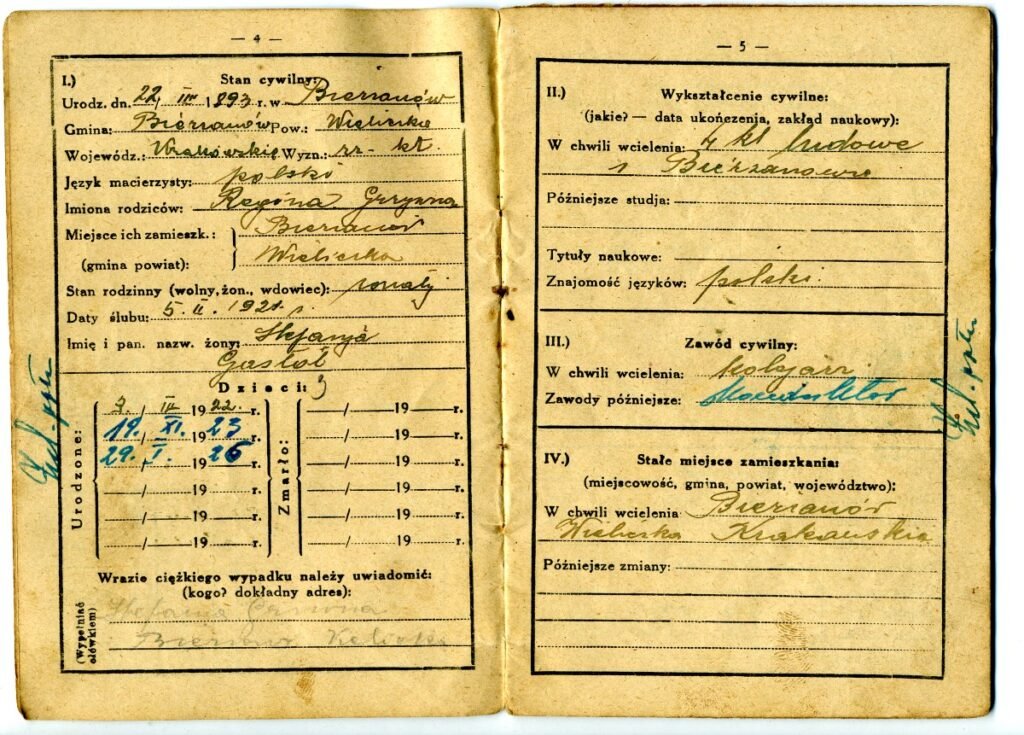 — 4 —
I.) Stan cywilny:
Urodz. dn. 22 III 1893 r. w Bierzanów
Gmina: Bierzanów Pow.: Wieliczka
Wojewódz.: Krakowskie Wyzn.: rz- kt.
Język macierzysty: polski
Imiona rodziców: Regina
Miejsce ich zamieszk.: Bierzanów
(gmina powiat): Wieliczka
Stan rodzinny (wolny, żon., wdowiec): żonaty
Daty ślubu: 5. II. 1921 r.
Imię i pan. nazw. żony: Stefanja
Gastoł
Dzieci: 3
Urodzone:
7. / III 19 22. r.
19. / XI. 19 23 r.
29. / I. 19 26 r.
—/— 19 — r.
—/— 19 — r.
—/— 19 — r.
Zmarło:
—/— 19 — r.
—/— 19 — r.
—/— 19 — r.
—/— 19 — r.
—/— 19 — r.
—/— 19 — r.
Wrazie ciężkiego wypadku należy uwiadomić:
(kogo? dokładny adres):
(Wypełniać ołówkiem)
Stefania
— 5 —
II.) Wykształcenie cywilne:
(jakie? — data ukończenia, zakład naukowy):
W chwili wcielenia: 4 kl ludowe
Bierzanowie
Późniejsze studja:
Tytuły naukowe:
Znajomość języków: polski
III.) Zawód cywilny:
W chwili wcielenia: kolejarz
Zawody późniejsze:
IV.) Stałe miejsce zamieszkania:
(miejscowość, gmina, powiat, województwo):
W chwili wcielenia Bierzanów
Wieliczka Krakowskie
Późniejsze zmiany: